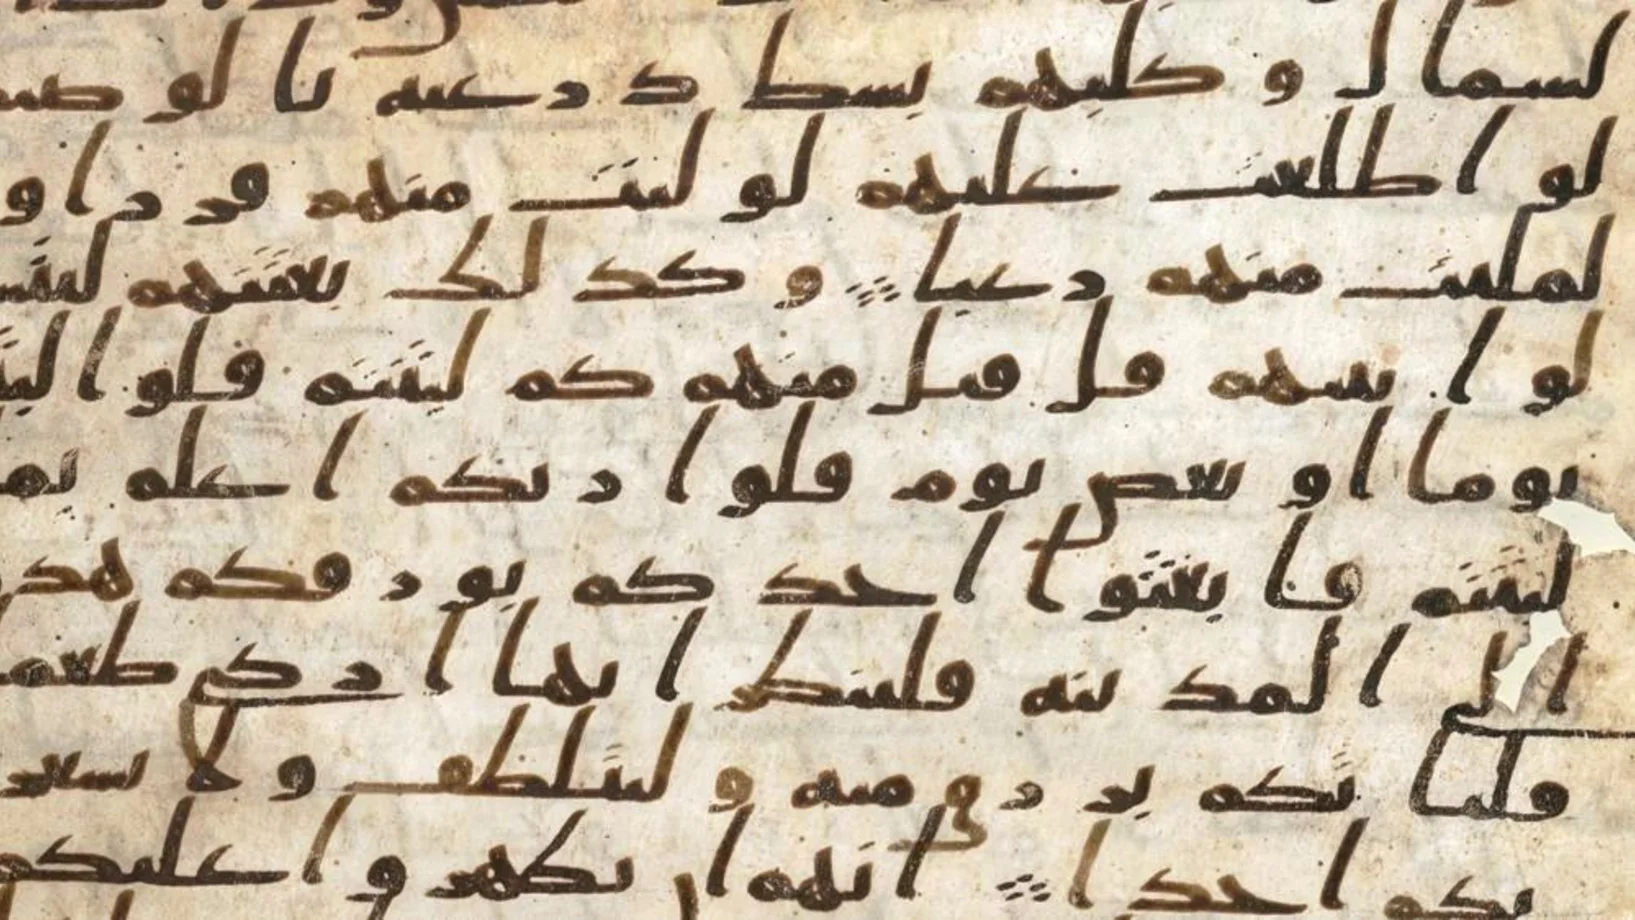 لسمال وكلبهم بسط ذرعيه بالوصيـ
لو اطلعت عليهم لوليت منهم فررا و
لملئت منهم رعبا وكذلك بعثنهم ليتسـ
لوا بينهم قل قيل منهم كم لبثتم قلوا لبثـ
يوما او بعض يوم قلوا ربكم اعلم بمـ
لبثتم فابعثوا احدكم بورقكم هذ
الى المدينه فلينظر ايها ازكى طعمـ
فلياتكم برزق منه وليتلطف ولا يشعر
بكم احدا انهم ان يظهروا عليكم